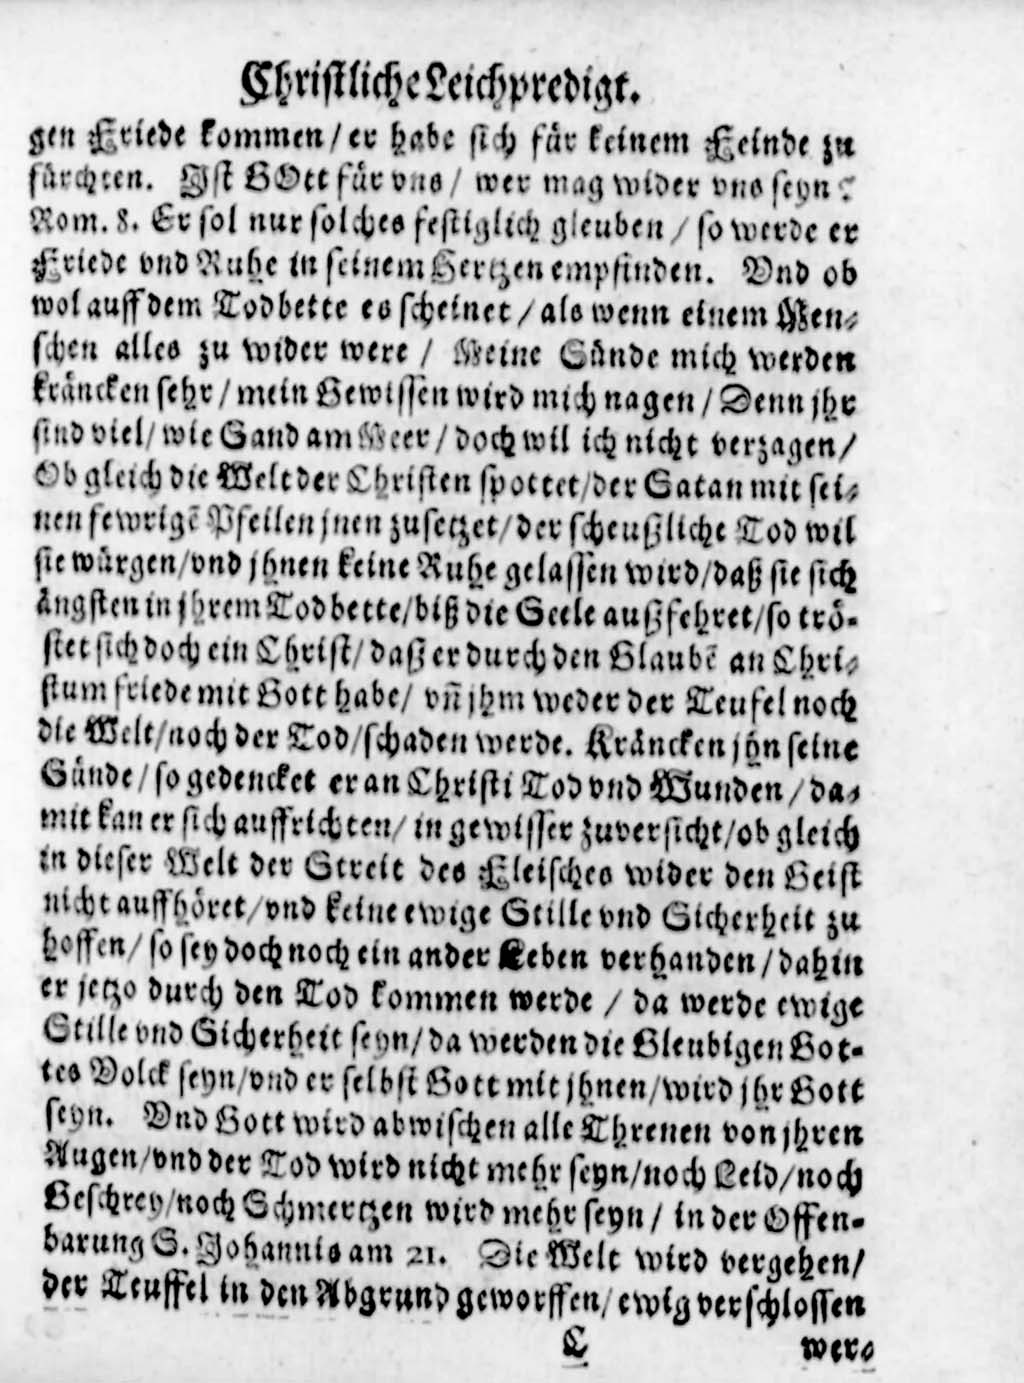 Christliche Leichpredigt.
gen Friede kommen/ er habe sich für keinem Feinde zu
fürchten. Ist GOtt für vns/ wer mag wider vns seyn?
Rom. 8. Er sol nur solches festiglich gleuben/ so werde er
Friede vnd Ruhe in seinem Hertzen empfinden. Vnd ob
wol auff dem Todbette es scheinet/ als wenn einem Men-
schen alles zu wider were/ Meine Sünde mich werden
kräncken sehr/ mein Gewissen wird mich nagen/ Denn jhr
sind viel/ wie Sand am Meer/ doch wil ich nicht verzagen/
Ob gleich die Welt der Christen spottet/ der Satan mit sei-
nen fewrigē Pfeilen jnen zusetzet/ der scheußliche Tod wil
sie würgen/ vnd jhnen keine Ruhe gelassen wird/ daß sie sich
ängsten in jhrem Todbette/ biß die Seele außfehret/ so trö-
stet sich doch ein Christ/ daß er durch den Glaubē an Chri-
stum friede mit Gott habe/ vñ jhm weder der Teufel noch
die Welt/ noch der Tod/ schaden werde. Kräncken jhn seine
Sünde/ so gedencket er an Christi Tod vnd Wunden/ da-
mit kan er sich auffrichten/ in gewisser zuversicht/ ob gleich
in dieser Welt der Streit des Fleisches wider den Geist
nicht auffhöret/ vnd keine ewige Stille vnd Sicherheit zu
hoffen/ so sey doch noch ein ander Leben verhanden/ dahin
er jetzo durch den Tod kommen werde/ da werde ewige
Stille vnd Sicherheit seyn/ da werden die Gleubigen Got-
tes Volck seyn/ vnd er selbst Gott mit jhnen/ wird jhr Gott
seyn. Vnd Gott wird abwischen alle Threnen von jhren
Augen/ vnd der Tod wird nicht mehr seyn/ noch Leid/ noch
Geschrey/ noch Schmertzen wird mehr seyn/ in der Offen-
barung S. Johannis am 21. Die Welt wird vergehen/
der Teuffel in den Abgrund geworffen/ ewig verschlossen
C wer-